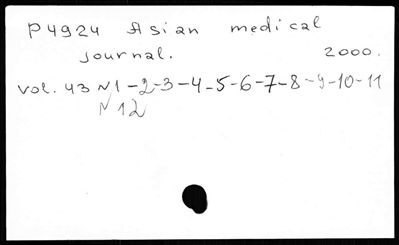 P4924 Asian medical
journal. 2000.
vol. 43 N1-2-3-4-5-6-7-8-9-10-11
N12